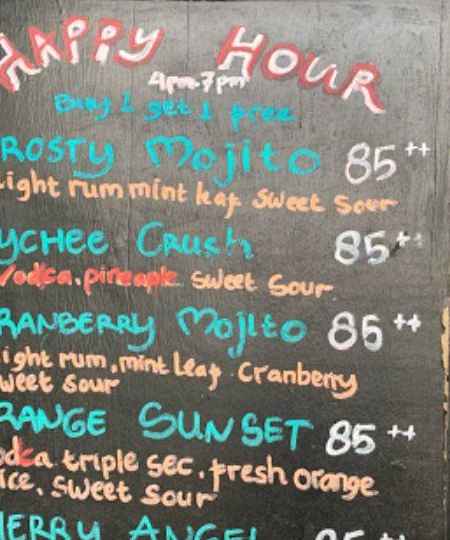 HAPPY HOUR
4pm-7pm
Buy 1 get 1 free
ROSTY Mojito 85++
ight rum mint leaf sweet sour
YCHEE Crush 85++
Vodca.pineapple sweet sour
RANBERRY Mojito 85++
ight rum, mint leaf Cranberry
weet sour
RANGE SUNSET 85++
odca triple sec. fresh orange
ice. sweet sour
HERRY ANGEL 85++